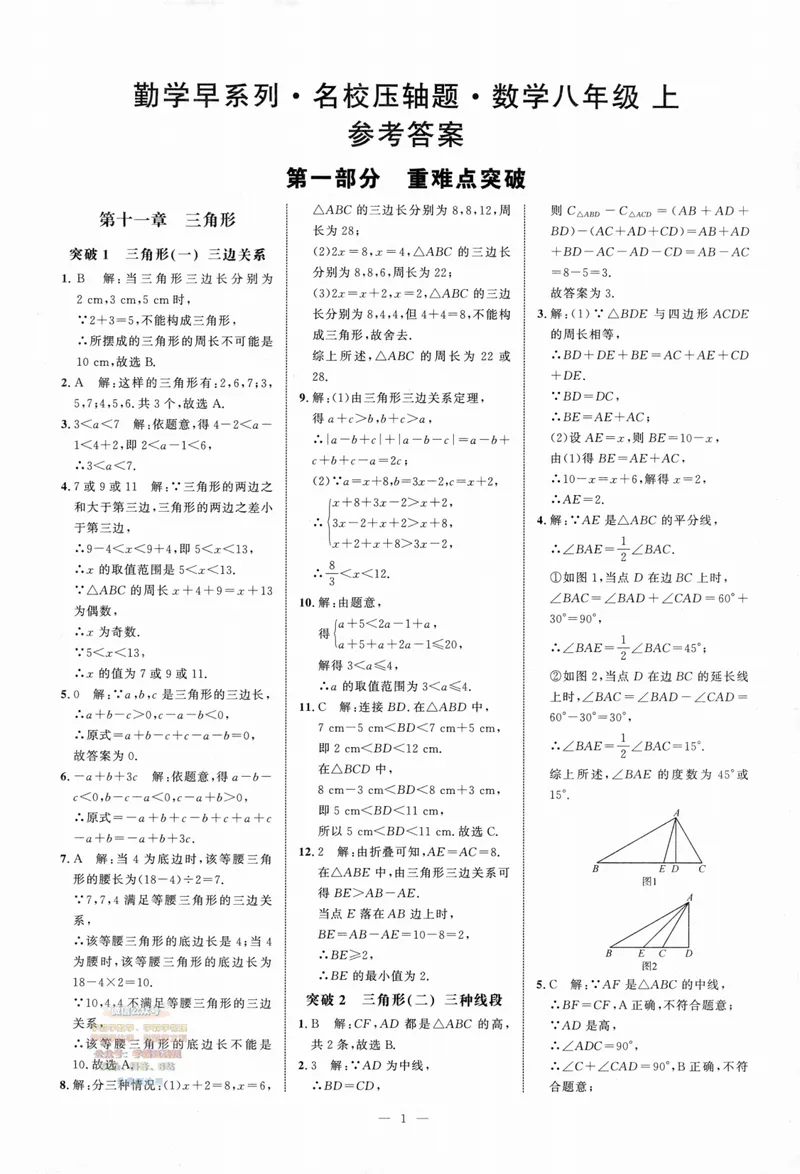 勤学早系列·名校压轴题·数学八年级 上
参考答案
第一部分 重难点突破
第十一章 三角形
突破1 三角形(一) 三边关系
1. B 解:当三角形三边长分别为
2 cm,3 cm,5 cm时,
∵2+3=5,不能构成三角形,
∴所摆成的三角形的周长不可能是
10 cm,故选B.
2. A 解:这样的三角形有:2,6,7;3,
5,7;4,5,6.共3个,故选A.
3. 3<a<7 解:依题意,得4-2<a-
1<4+2,即2<a-1<6,
∴3<a<7.
4. 7或9或11 解:∵三角形的两边之
和大于第三边,三角形的两边之差小
于第三边,
∴9-4<x<9+4,即5<x<13,
∴x的取值范围是5<x<13.
∵△ABC的周长x+4+9=x+13
为偶数,
∴x为奇数.
∵5<x<13,
∴x的值为7或9或11.
5. 0 解:∵a,b,c是三角形的三边长,
∴a+b-c>0,c-a-b<0,
∴原式=a+b-c+c-a-b=0,
故答案为0.
6. -a+b+3c 解:依题意,得a-b-
c<0,b-c-a<0,c-a+b>0,
∴原式=-a+b+c-b+c+a+c
-a+b=-a+b+3c.
7. A 解:当4为底边时,该等腰三角
形的腰长为(18-4)÷2=7.
∵7,7,4满足等腰三角形的三边关
系,
∴该等腰三角形的底边长是4;当4
为腰时,该等腰三角形的底边长为
18-4×2=10.
∵10,4,4不满足等腰三角形的三边
关系,
∴该等腰三角形的底边长不能是
10.故选A.
8. 解:分三种情况:(1)x+2=8,x=6,
△ABC的三边长分别为8,8,12,周
长为28;
(2)2x=8,x=4,△ABC的三边长
分别为8,8,6,周长为22;
(3)2x=x+2,x=2,△ABC的三边
长分别为8,4,4,但4+4=8,不能构
成三角形,故舍去.
综上所述,△ABC的周长为22或
28.
9. 解:(1)由三角形三边关系定理,
得a+c>b,b+c>a,
∴|a-b+c|+|a-b-c|=a-b+
c+b+c-a=2c;
(2)∵a=x+8,b=3x-2,c=x+2,
x+8+3x-2>x+2,
∴{3x-2+x+2>x+8,
x+2+x+8>3x-2,
∴8/3<x<12.
10. 解:由题意,
得{a+5<2a-1+a,
a+5+a+2a-1≤20,
解得3<a≤4,
∴a的取值范围为3<a≤4.
11. C 解:连接BD.在△ABD中,
7 cm-5 cm<BD<7 cm+5 cm,
即2 cm<BD<12 cm.
在△BCD中,
8 cm-3 cm<BD<8 cm+3 cm,
即5 cm<BD<11 cm,
所以5 cm<BD<11 cm.故选C.
12. 2 解:由折叠可知,AE=AC=8.
在△ABE中,由三角形三边关系可
得BE>AB-AE.
当点E落在AB边上时,
BE=AB-AE=10-8=2,
∴BE≥2,
∴BE的最小值为2.
突破2 三角形(二) 三种线段
1. B 解:CF,AD都是△ABC的高,
共2条,故选B.
2. 3 解:∵AD为中线,
∴BD=CD,
则C△ABD-C△ACD=(AB+AD+
BD)-(AC+AD+CD)=AB+AD
+BD-AC-AD-CD=AB-AC
=8-5=3.
故答案为3.
3. 解:(1)∵△BDE与四边形ACDE
的周长相等,
∴BD+DE+BE=AC+AE+CD
+DE.
∵BD=DC,
∴BE=AE+AC;
(2)设AE=x,则BE=10-x,
由(1)得BE=AE+AC,
∴10-x=x+6,解得x=2,
∴AE=2.
4. 解:∵AE是△ABC的平分线,
∴∠BAE=1/2∠BAC.
①如图1,当点D在边BC上时,
∠BAC=∠BAD+∠CAD=60°+
30°=90°,
∴∠BAE=1/2∠BAC=45°;
②如图2,当点D在边BC的延长线
上时,∠BAC=∠BAD-∠CAD=
60°-30°=30°,
∴∠BAE=1/2∠BAC=15°.
综上所述,∠BAE的度数为45°或
15°.
A
B E D C
图1
A
B E C D
图2
5. C 解:∵AF是△ABC的中线,
∴BF=CF,A正确,不符合题意;
∵AD是高,
∴∠ADC=90°,
∴∠C+∠CAD=90°,B正确,不符
合题意;
— 1 —